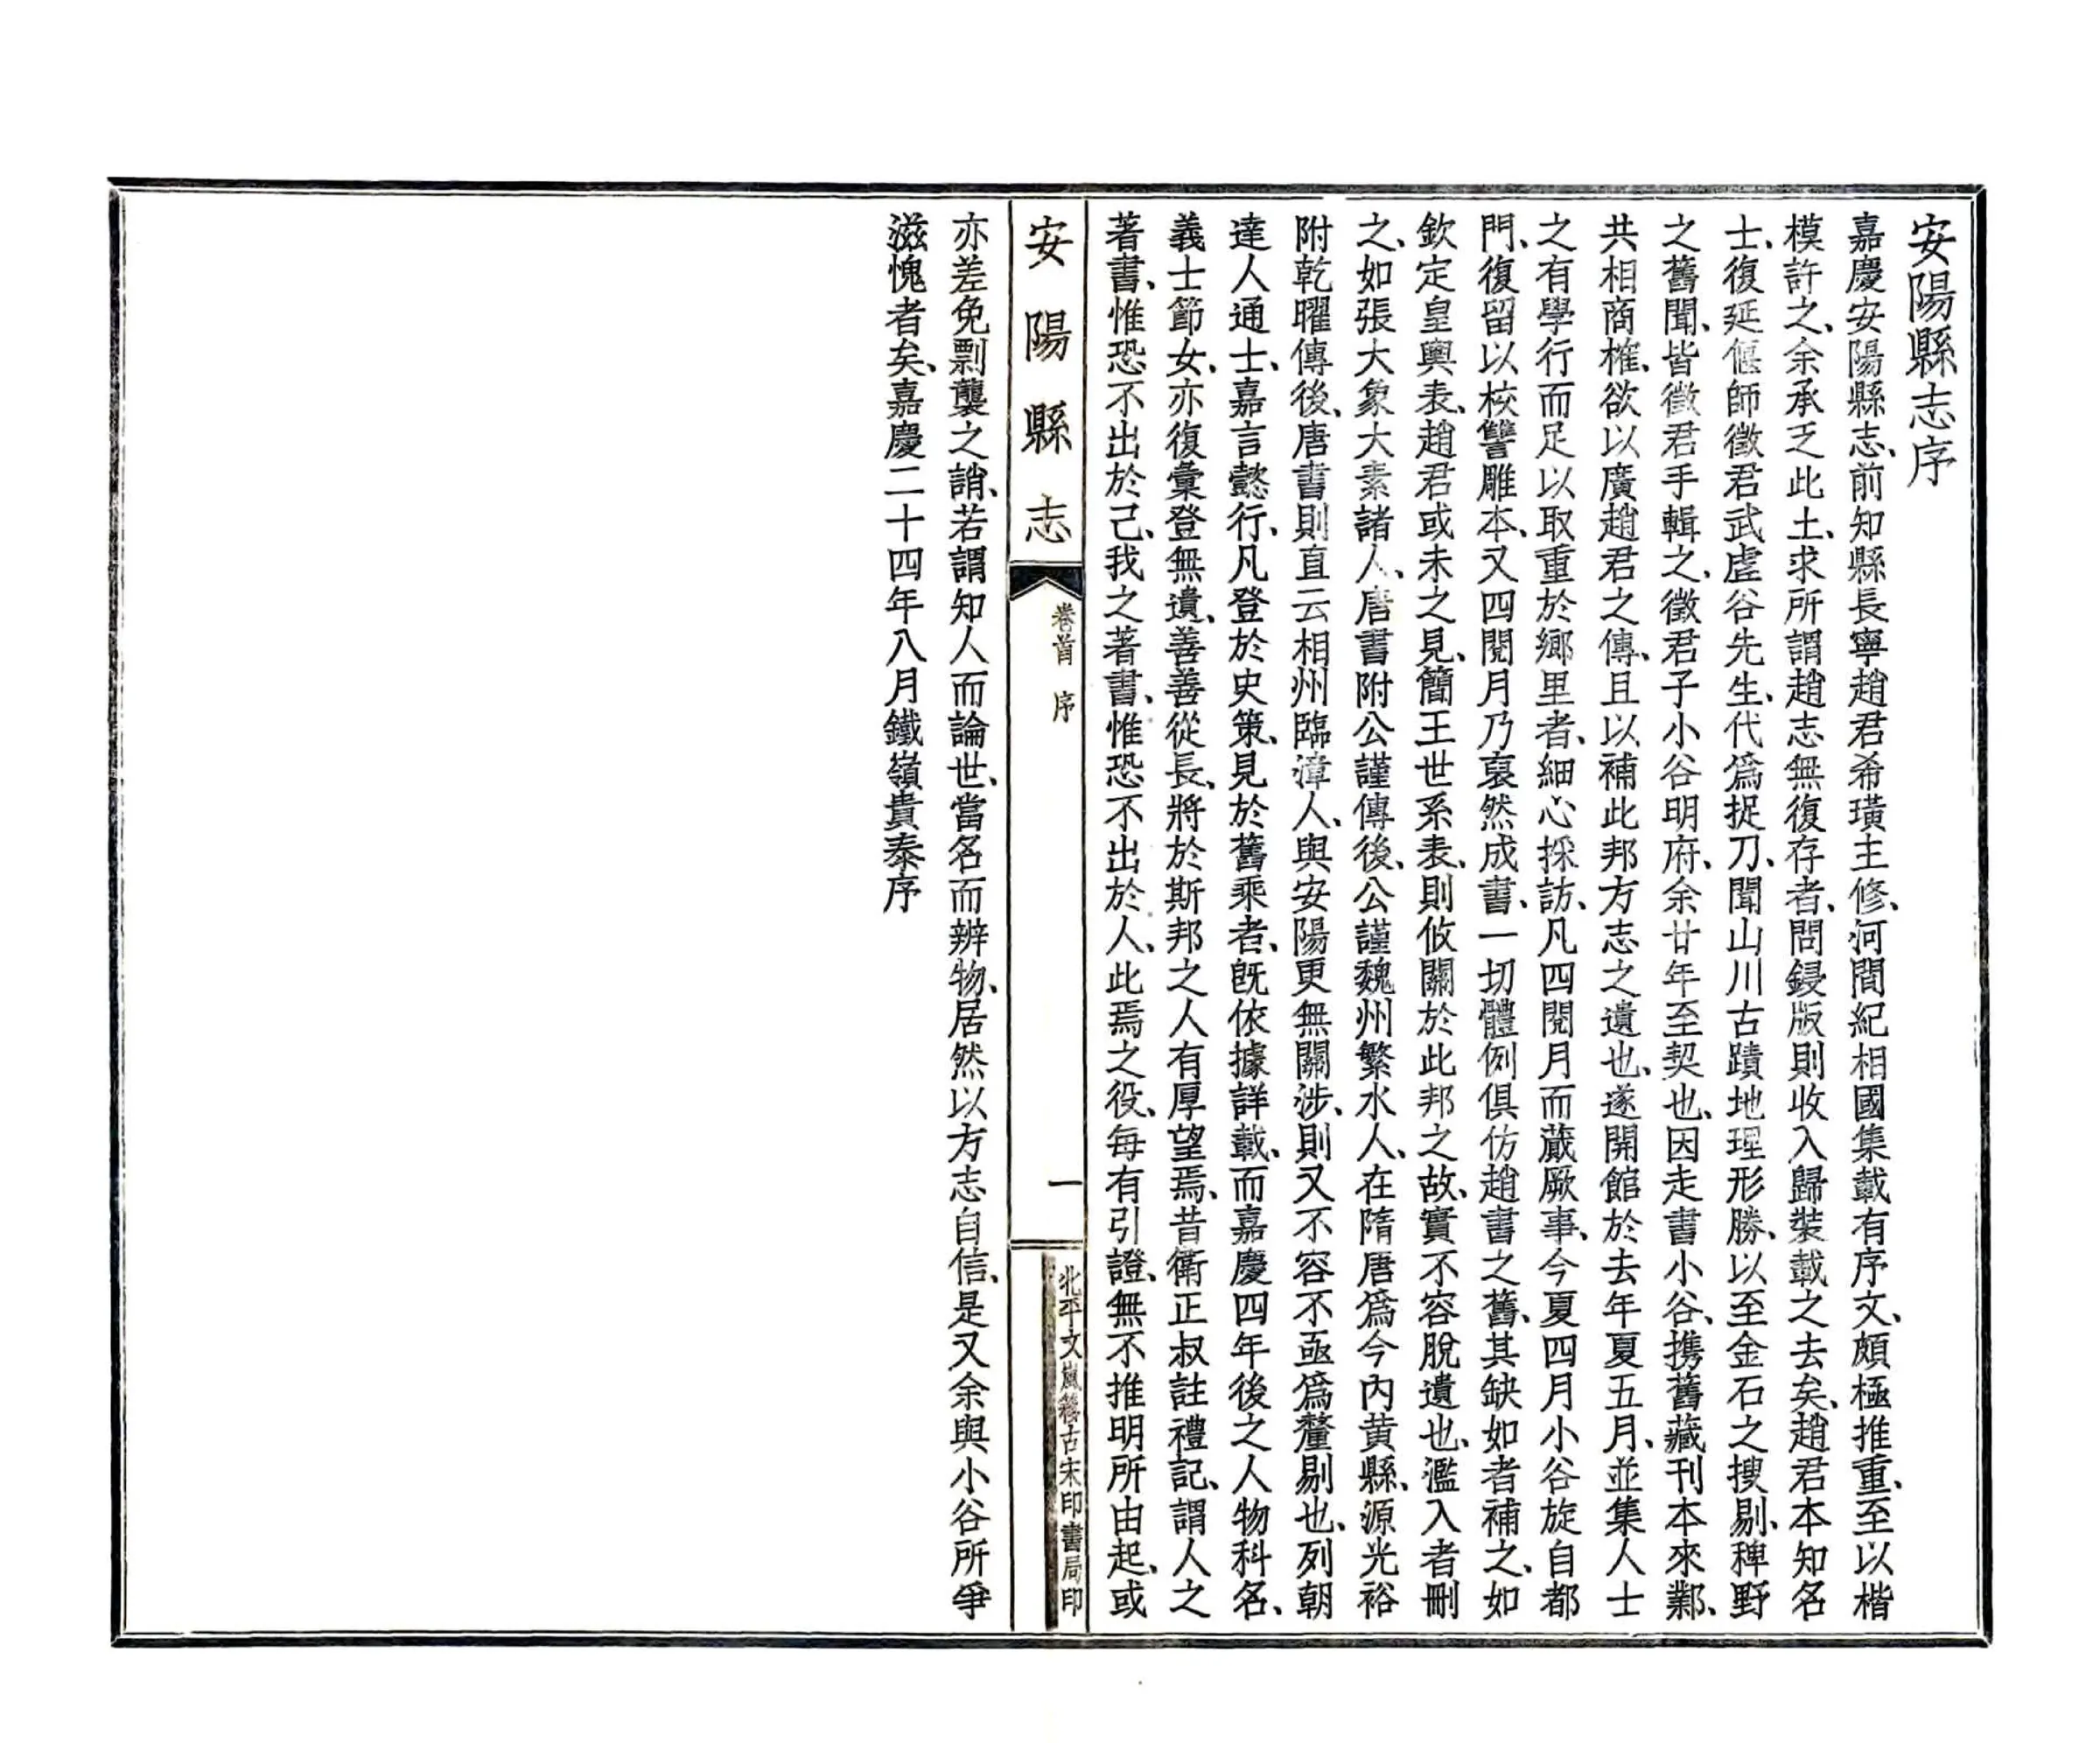 安陽縣志序
嘉慶安陽縣志、前知縣長寧趙君希璜主修、河間紀相國集載有序文、頗極推重、至以楷
模許之、余承乏此土、求所謂趙志無復存者、問鋟版則收入歸裝載之去矣、趙君本知名
士、復延偃師徵君武虛谷先生、代爲捉刀、聞山川古蹟地理形勝、以至金石之搜剔、稗野
之舊聞、皆徵君手輯之、徵君子小谷明府、余廿年至契也、因走書小谷、携舊藏刊本來鄴、
共相商榷、欲以廣趙君之傳、且以補此邦方志之遺也、遂開館於去年夏五月、並集人士
之有學行而足以取重於鄉里者、細心採訪、凡四閱月而蕆厥事、今夏四月小谷旋自都
門、復留以校讐雕本、又四閱月乃裒然成書、一切體例俱仿趙書之舊、其缺如者補之、如
欽定皇輿表、趙君或未之見、簡王世系表、則攸關於此邦之故、實不容脫遺也、濫入者刪
之、如張大象大素諸人、唐書附公謹傳後、公謹魏州繁水人、在隋唐爲今內黄縣、源光裕
附乾曜傳後、唐書則直云相州臨漳人、與安陽更無關涉、則又不容不亟爲釐剔也、列朝
達人通士、嘉言懿行、凡登於史策、見於舊乘者、旣依據詳載、而嘉慶四年後之人物科名、
義士節女、亦復彙登無遺、善善從長、將於斯邦之人有厚望焉、昔衛正叔註禮記、謂人之
著書、惟恐不出於己、我之著書、惟恐不出於人、此焉之役、每有引證、無不推明所由起、或
安陽縣志
卷首 序
一
北平文嵐簃古宋印書局印
亦差免剽襲之誚、若謂知人而論世、當名而辨物、居然以方志自信、是又余與小谷所爭
滋愧者矣、嘉慶二十四年八月鐵嶺貴泰序